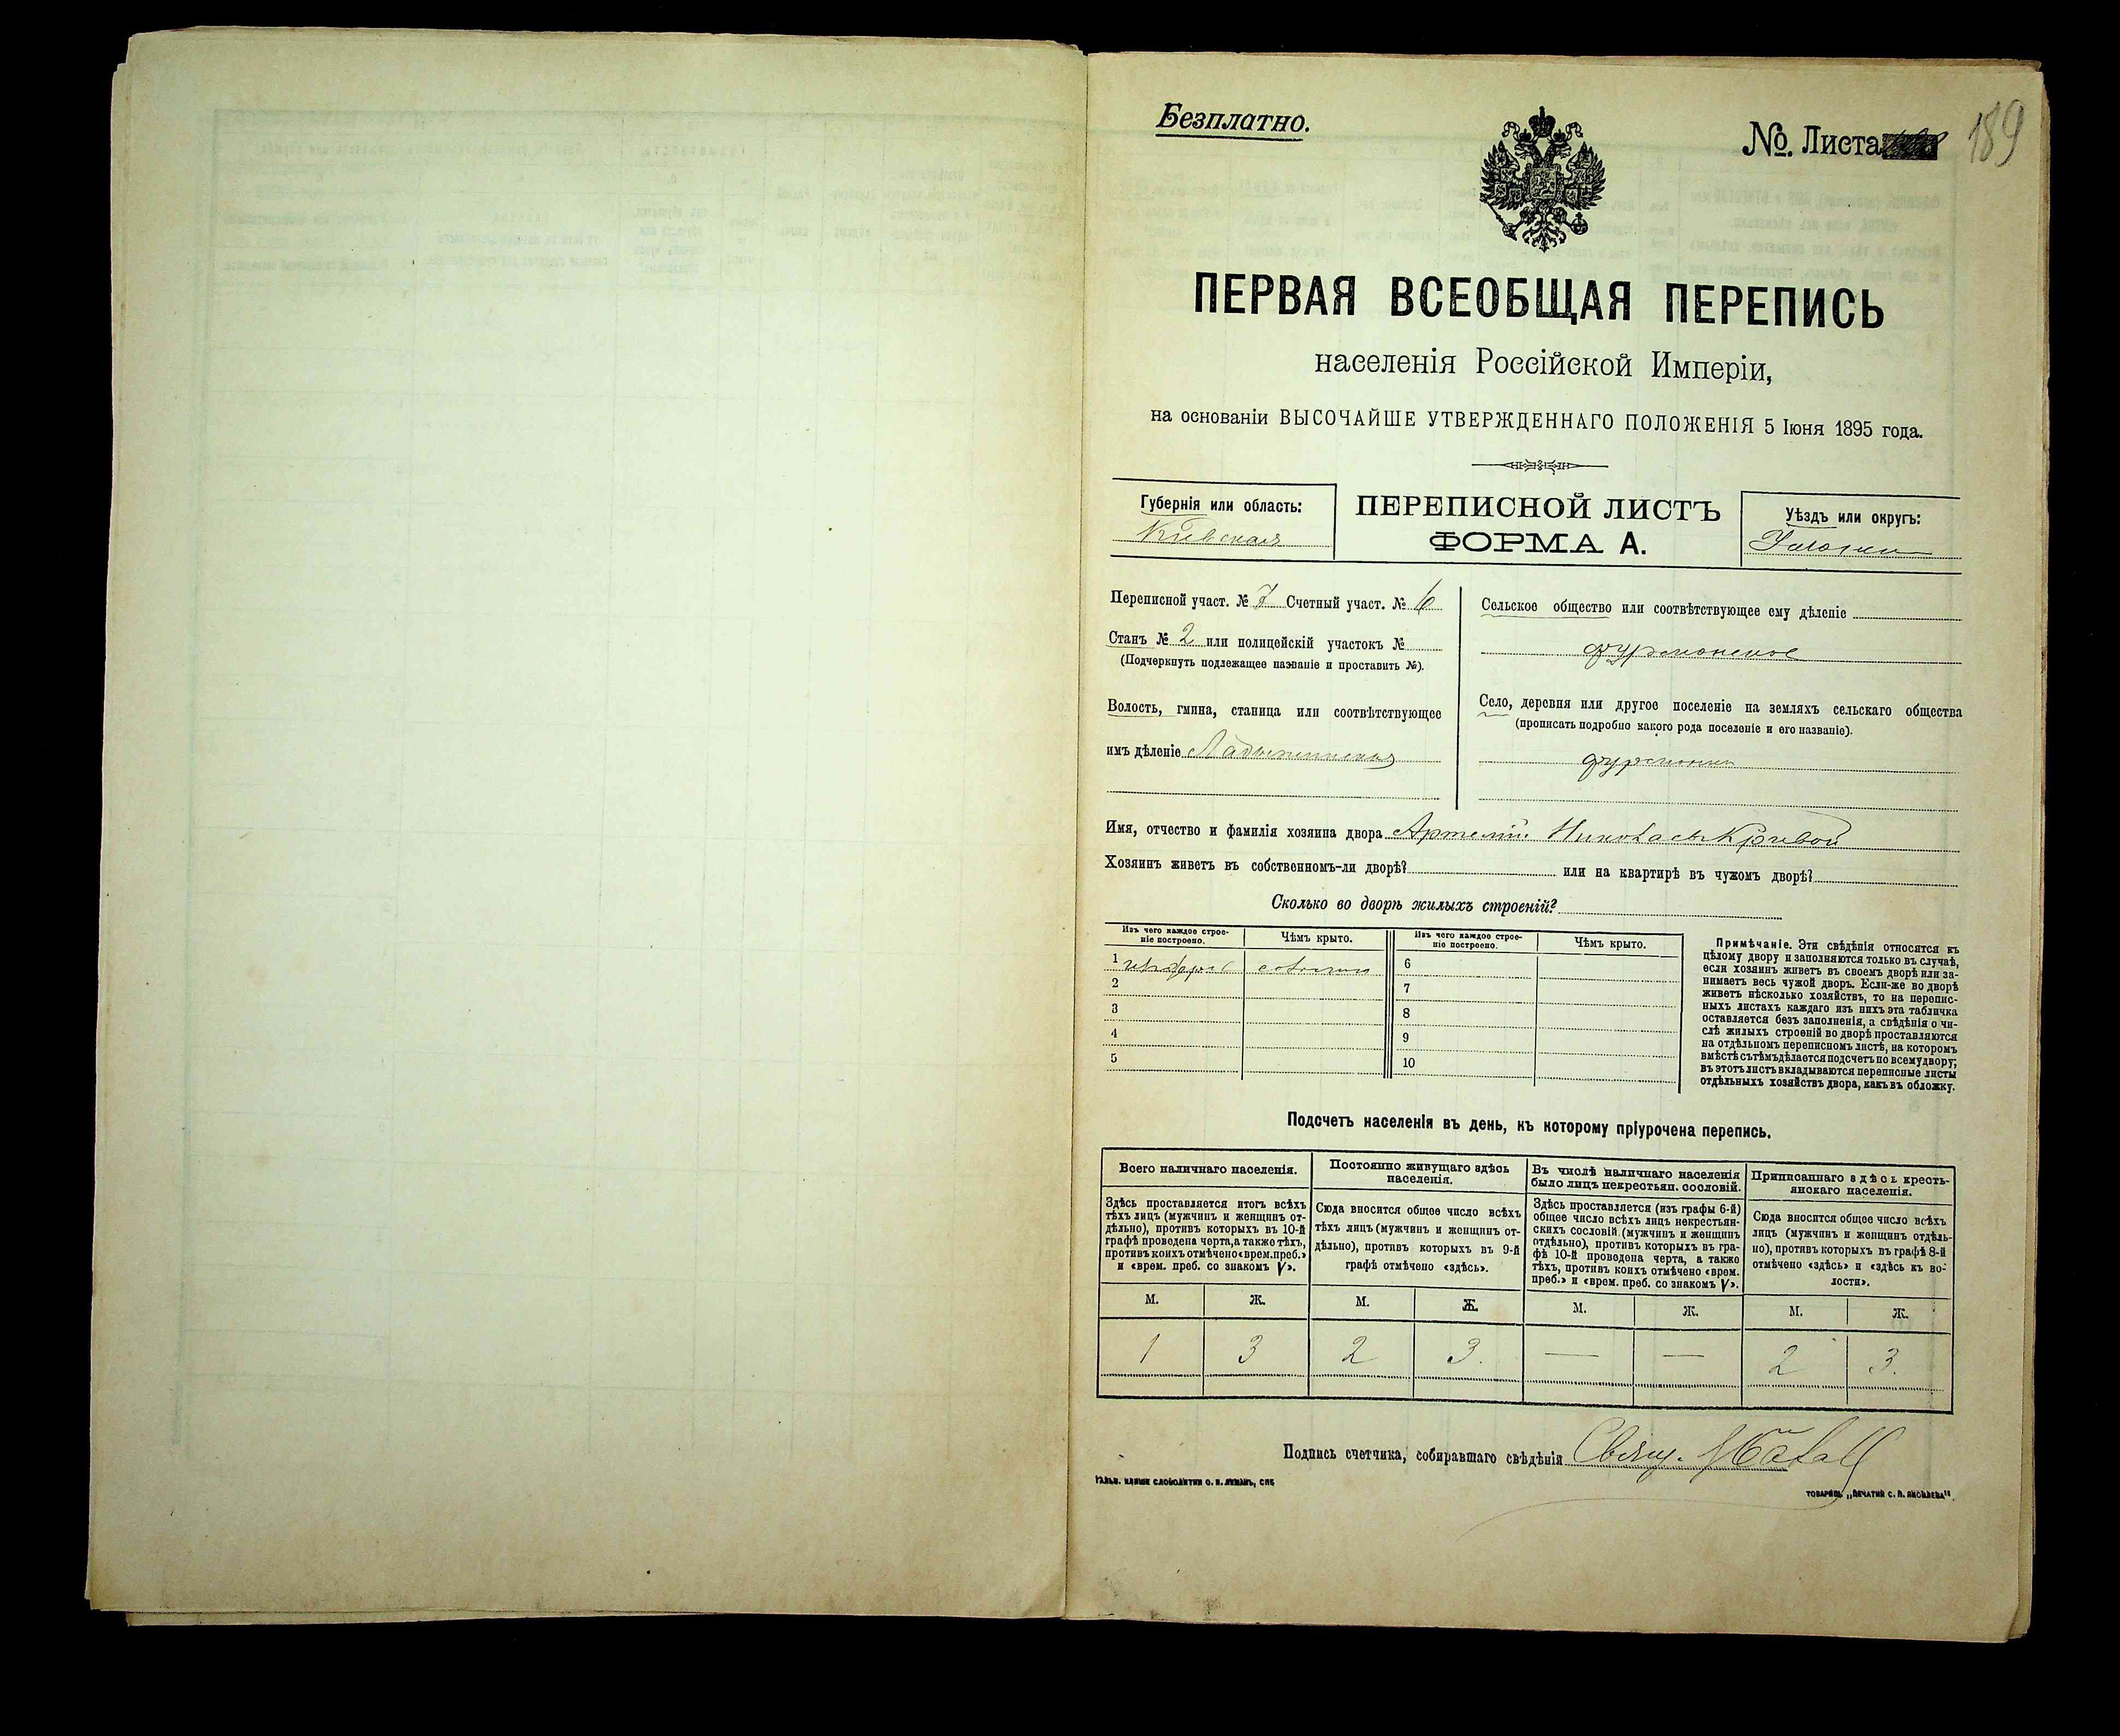 Безплатно.
№. Листа 189
ПЕРВАЯ ВСЕОБЩАЯ ПЕРЕПИСЬ
населенія Россійской Имперіи,
на основаніи ВЫСОЧАЙШЕ УТВЕРЖДЕННАГО ПОЛОЖЕНІЯ 5 Іюня 1895 года.
Губернія или область:
Кіевская
ПЕРЕПИСНОЙ ЛИСТЪ
ФОРМА А.
Уѣздъ или округъ:
Переписной участ. № 7 Счетный участ. № 6
Станъ № 2 или полицейскій участокъ №
(Подчеркнуть подлежащее названіе и проставить №).
Волость, гмина, станица или соотвѣтствующее
имъ дѣленіе Ладыжинская
Сельское общество или соотвѣтствующее ему дѣленіе
фурманское
Село, деревня или другое поселеніе на земляхъ сельскаго общества
(прописать подробно какого рода поселеніе и его названіе).
Имя, отчество и фамилія хозяина двора Артемій Николаевъ Кривой
Хозяинъ живетъ въ собственномъ-ли дворѣ? или на квартирѣ въ чужомъ дворѣ?
Сколько во дворѣ жилыхъ строеній?
Изъ чего каждое строе-
ніе построено.
Чѣмъ крыто.
Изъ чего каждое строе-
ніе построено.
Чѣмъ крыто.
1 соломою 6
2 7
3 8
4 9
5 10
Примѣчаніе. Эти свѣдѣнія относятся къ
цѣлому двору и заполняются только въ случаѣ,
если хозяинъ живетъ въ своемъ дворѣ или за-
нимаетъ весь чужой дворъ. Если-же во дворѣ
живетъ нѣсколько хозяйствъ, то на перепис-
ныхъ листахъ каждаго изъ нихъ эта табличка
оставляется безъ заполненія, а свѣдѣнія о чи-
слѣ жилыхъ строеній во дворѣ проставляются
на отдѣльномъ переписномъ листѣ, на которомъ
вмѣстѣ съ тѣмъ дѣлается подсчетъ по всему двору;
въ этотъ листъ вкладываются переписные листы
отдѣльныхъ хозяйствъ двора, какъ въ обложку.
Подсчетъ населенія въ день, къ которому пріурочена перепись.
Всего наличнаго населенія.
Здѣсь проставляется итогъ всѣхъ
тѣхъ лицъ (мужчинъ и женщинъ от-
дѣльно), противъ которыхъ въ 10-й
графѣ проведена черта, а также тѣхъ,
противъ коихъ отмѣчено «врем. преб.»
и «врем. преб. со знакомъ V».
Постоянно живущаго здѣсь
населенія.
Сюда вносится общее число всѣхъ
тѣхъ лицъ (мужчинъ и женщинъ от-
дѣльно), противъ которыхъ въ 9-й
графѣ отмѣчено «здѣсь».
Въ числѣ наличнаго населенія
было лицъ некрестьян. сословій.
Здѣсь проставляется (изъ графы 6-й)
общее число всѣхъ лицъ некрестьян-
скихъ сословій (мужчинъ и женщинъ
отдѣльно), противъ которыхъ въ гра-
фѣ 10-й проведена черта, а также
тѣхъ, противъ коихъ отмѣчено «врем.
преб.» и «врем. преб. со знакомъ V».
Приписаннаго здѣсь кресть-
янскаго населенія.
Сюда вносится общее число всѣхъ
лицъ (мужчинъ и женщинъ отдѣль-
но), противъ которыхъ въ графѣ 8-й
отмѣчено «здѣсь» и «здѣсь къ во-
лости».
М. Ж. М. Ж. М. Ж. М. Ж.
1 3 2 3. — — 2 3.
Подпись счетчика, собиравшаго свѣдѣнія Свящ.
ТОВАРИЩ. „ПЕЧАТНИ С. П. ЯКОВЛЕВА“.